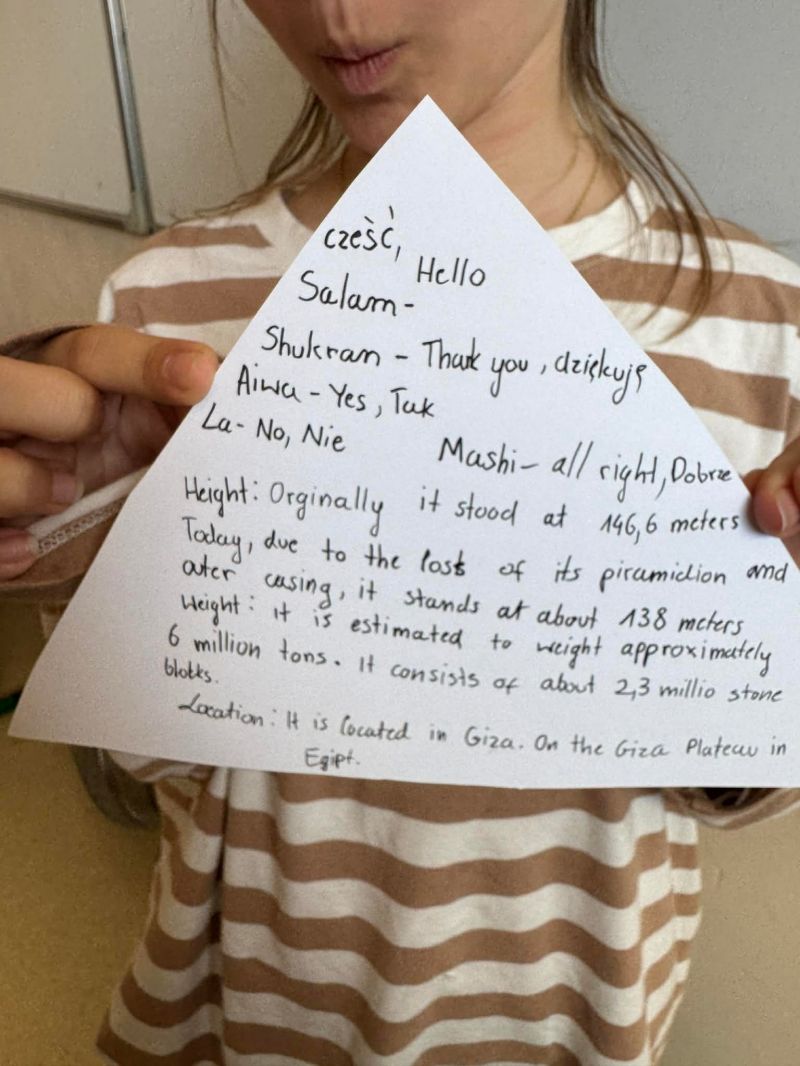 cześć,
Hello
Salam -
Shukran - Thank you, dziękuję
Aiwa - Yes, Tak
La - No, Nie
Mashi - all right, Dobrze
Height: Orginally it stood at 146,6 meters
Today, due to the lost of its piramidion and
outer casing, it stands at about 138 meters
Weight: it is estimated to weight approximately
6 million tons. It consists of about 2,3 millio stone
blokks.
Location: It is located in Giza. On the Giza Plateau in
Egipt.